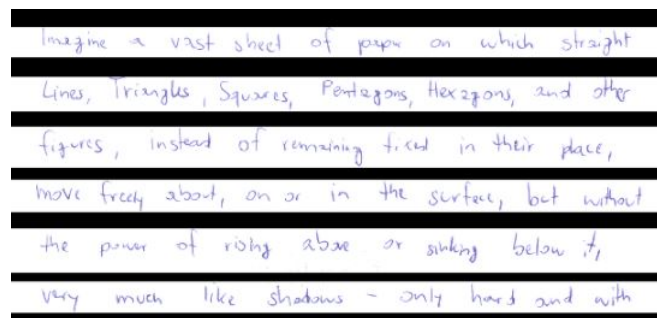 Imagine a vast sheet of paper on which straight
Lines, Triangles, Squares, Pentagons, Hexagons, and other
figures, instead of remaining fixed in their place,
move freely about, on or in the surface, but without
the power of rising above or sinking below it,
very much like shadows - only hard and with